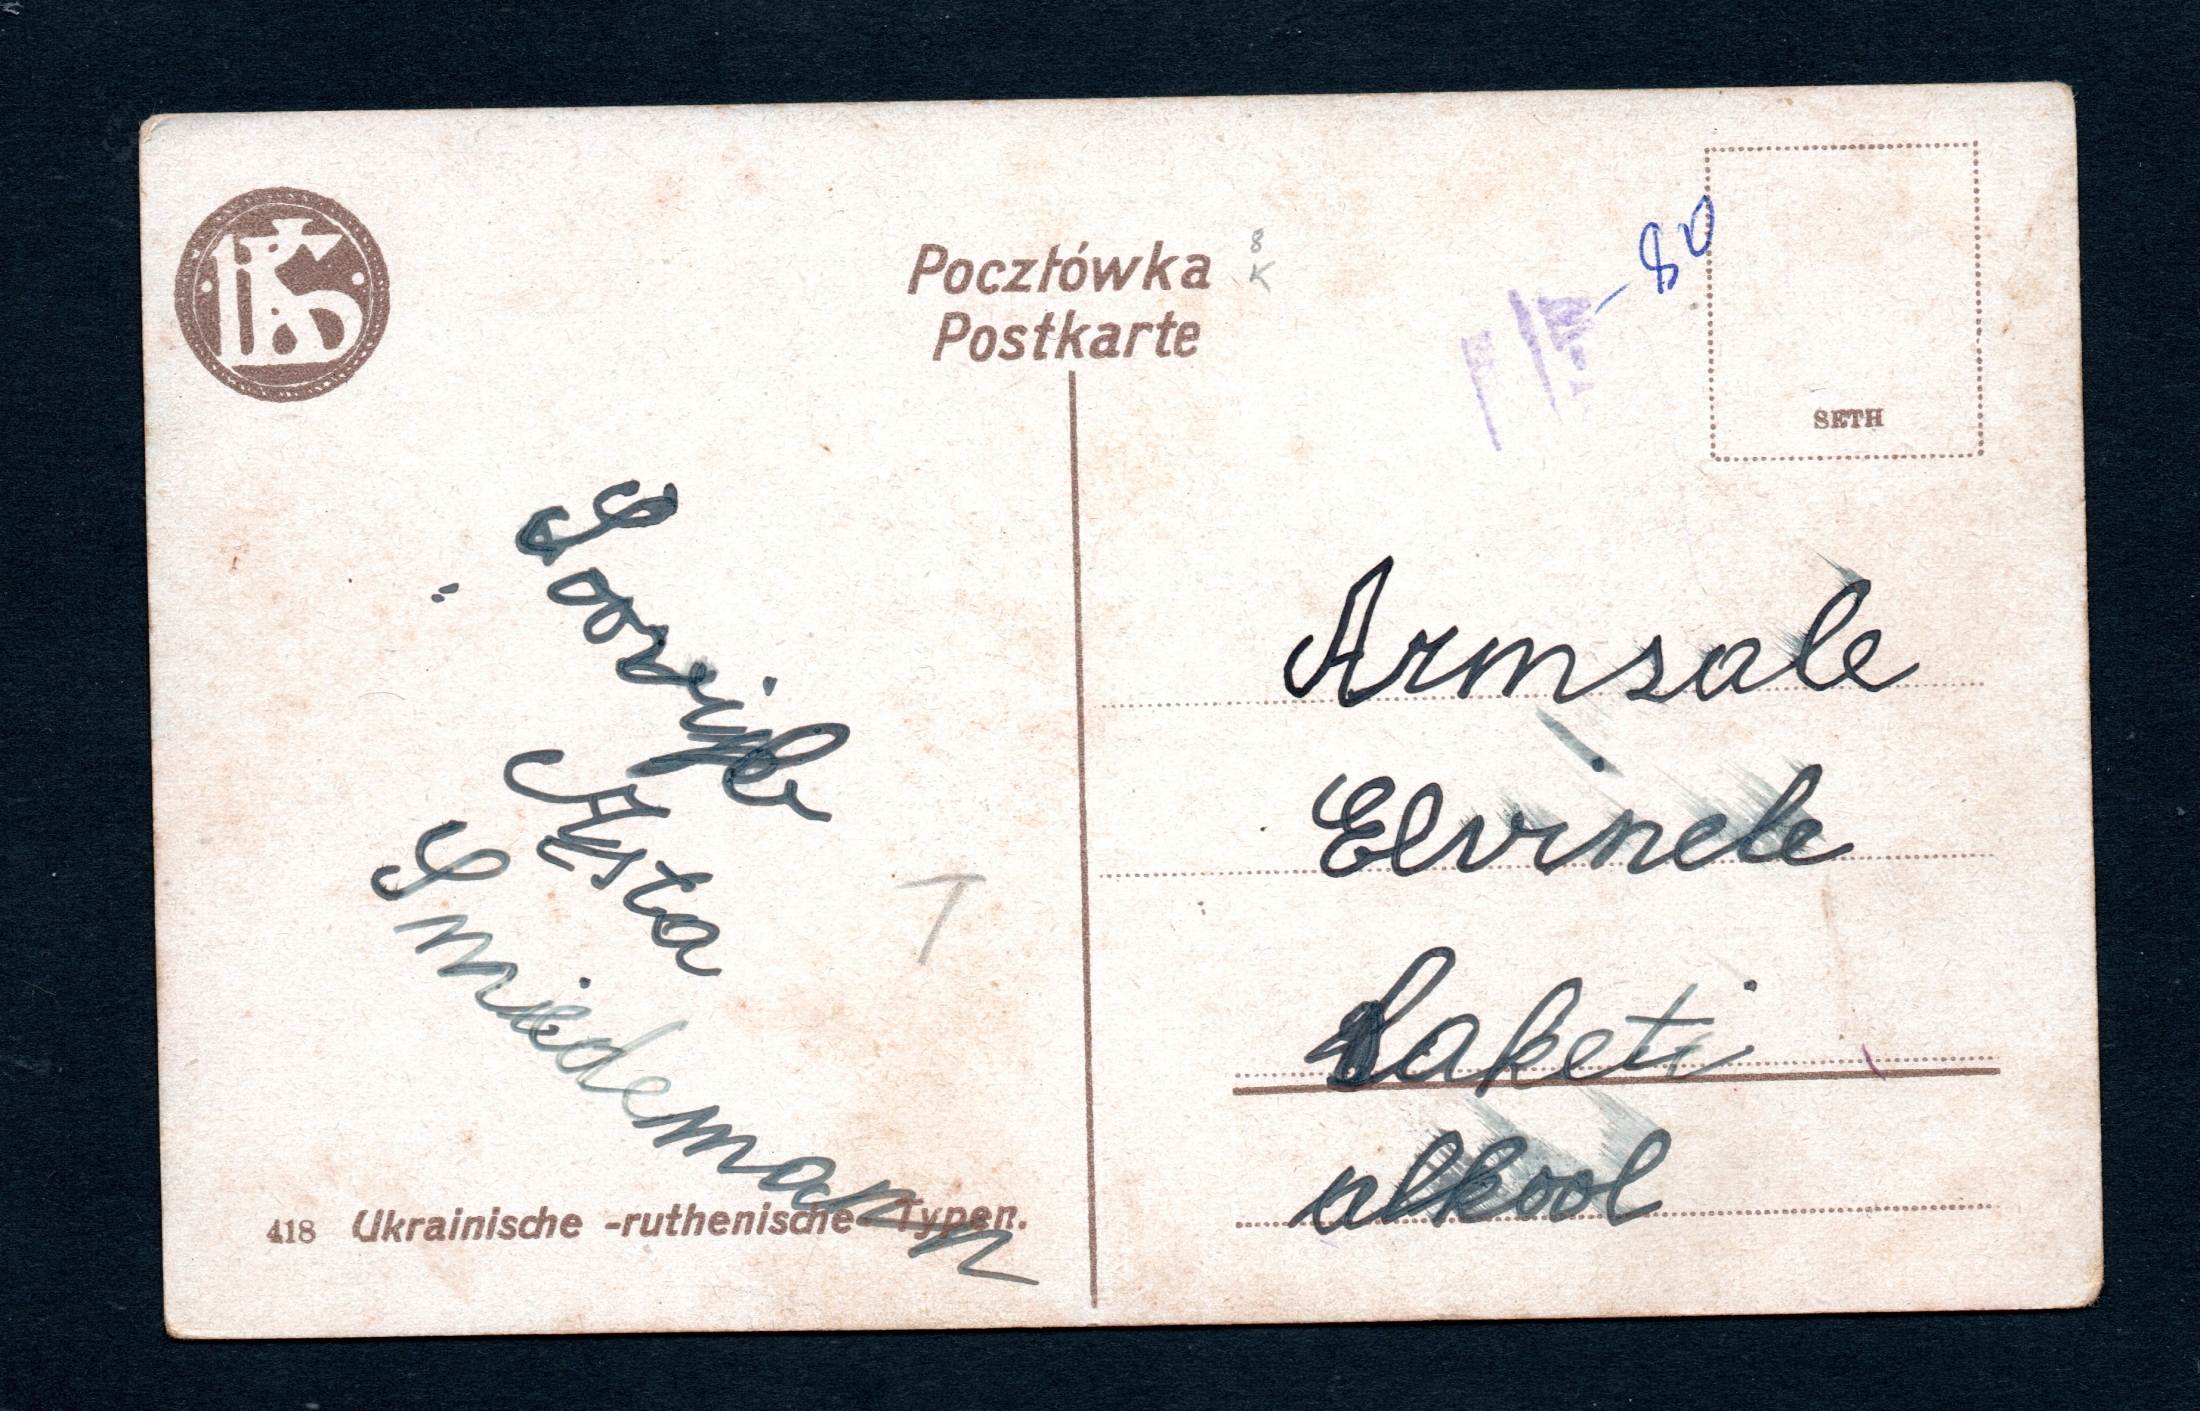 Pocztówka
Postkarte
8
K
- 80
SETH
Soovijle
Asta
Smiedemann
T
418 Ukrainische -ruthenische Typen.
Armsale
Elvinele
Laketi
alkool